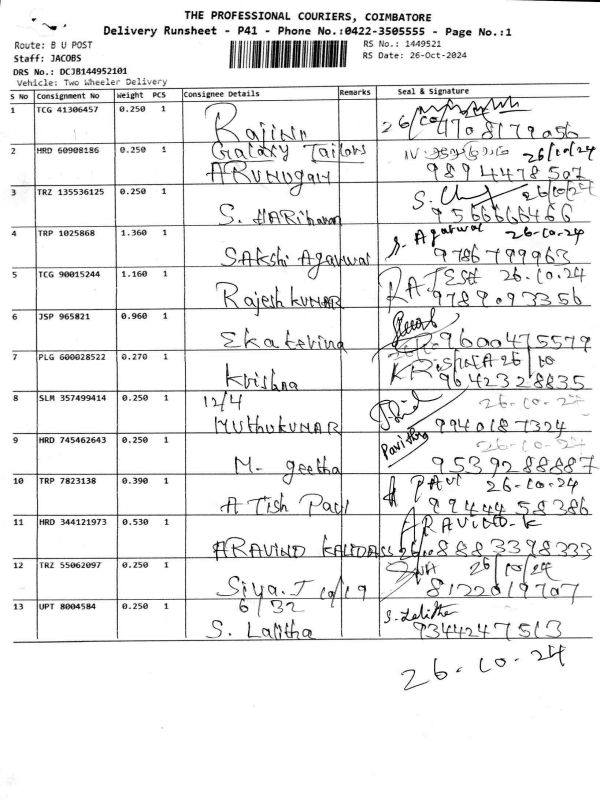 THE PROFESSIONAL COURIERS, COIMBATORE
Delivery Runsheet - P41 - Phone No.:0422-3505555 - Page No.:1
Route: B U POST
RS No.: 1449521
Staff: JACOBS
RS Date: 26-Oct-2024
DRS No.: DCJB144952101
Vehicle: Two Wheeler Delivery
S No Consignment No Weight PCS Consignee Details Remarks Seal & Signature
1 TCG 41306457 0.250 1
26/10 4708179056
2 HRD 60908186 0.250 1 Galaxy Tailors 26/10/24
ARUMUgam 9894478507
3 TRZ 135536125 0.250 1 26/10/24
S. HARiharan 9566666466
4 TRP 1025868 1.360 1 S. Agarwal 26-10-24
SAKshi Agarwal 9786799963
5 TCG 90015244 1.160 1 RAJESH 26.10.24
Rajesh KUMAR 9789093356
6 JSP 965821 0.960 1
Ekaterina 9600475579
7 PLG 600028522 0.270 1 KRISHNA 26/10
Krishna 9642328835
8 SLM 357499414 0.250 1 12/4 26-10-24
MUthUKUMAR 9940187324
9 HRD 745462643 0.250 1 Pavithra 26-10-24
M- geetha 9539288887
10 TRP 7823138 0.390 1 PAVI 26-10-24
ATish Paul 9944458386
11 HRD 344121973 0.530 1 ARAVIND-K
ARAVIND KALIDASS 26/10 8883398333
12 TRZ 55062097 0.250 1 26/10/24
Siya.J 10/19 8122019707
13 UPT 8004584 0.250 1 6/32 S. Lalitha
S. Lalitha 9344247513
26-10-24